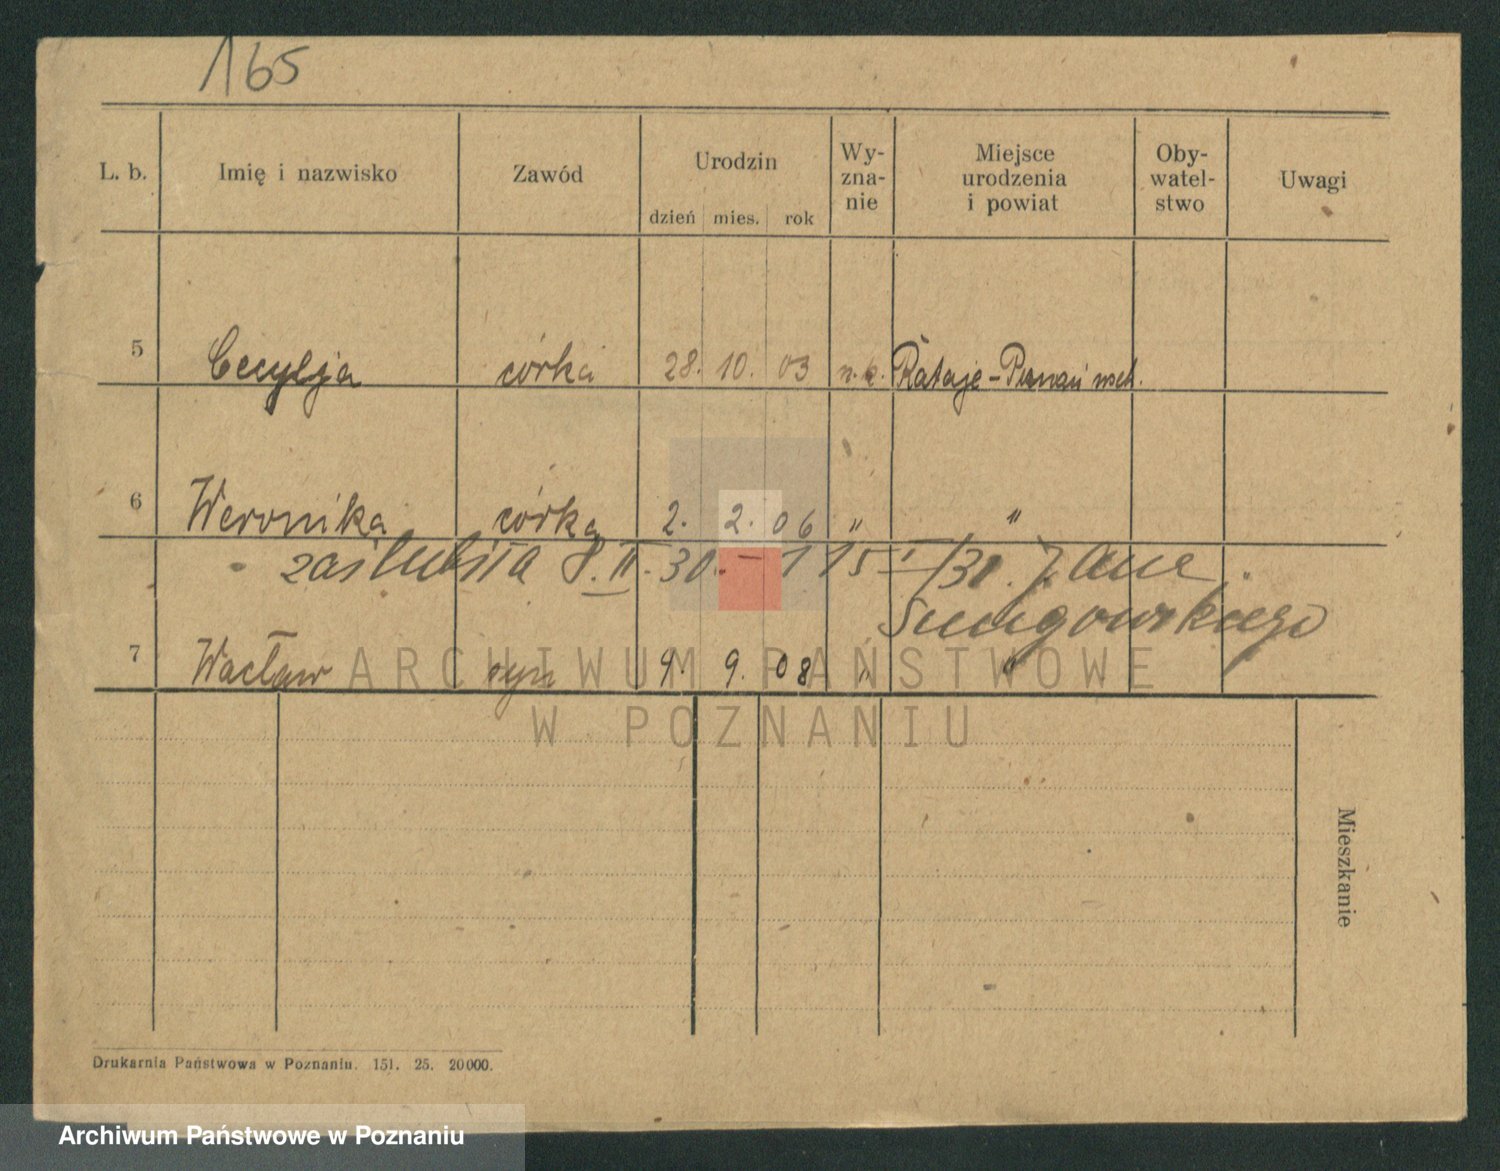 165
L. b. Imię i nazwisko Zawód Urodzin dzień mies. rok Wy-zna-nie Miejsce urodzenia i powiat Oby-watel-stwo Uwagi
5 Cecylja córka 28. 10. 03 Rataje - Poznań wsch.
6 Weronika córka 2. 2. 06 " "
zaślubiła 8. II. 30. - 115 I/30. Jana
7 Wacław syn 9. 9. 08 " "
ARCHIWUM PAŃSTWOWE
W POZNANIU
Mieszkanie
Drukarnia Państwowa w Poznaniu. 151. 25. 20000.
Archiwum Państwowe w Poznaniu